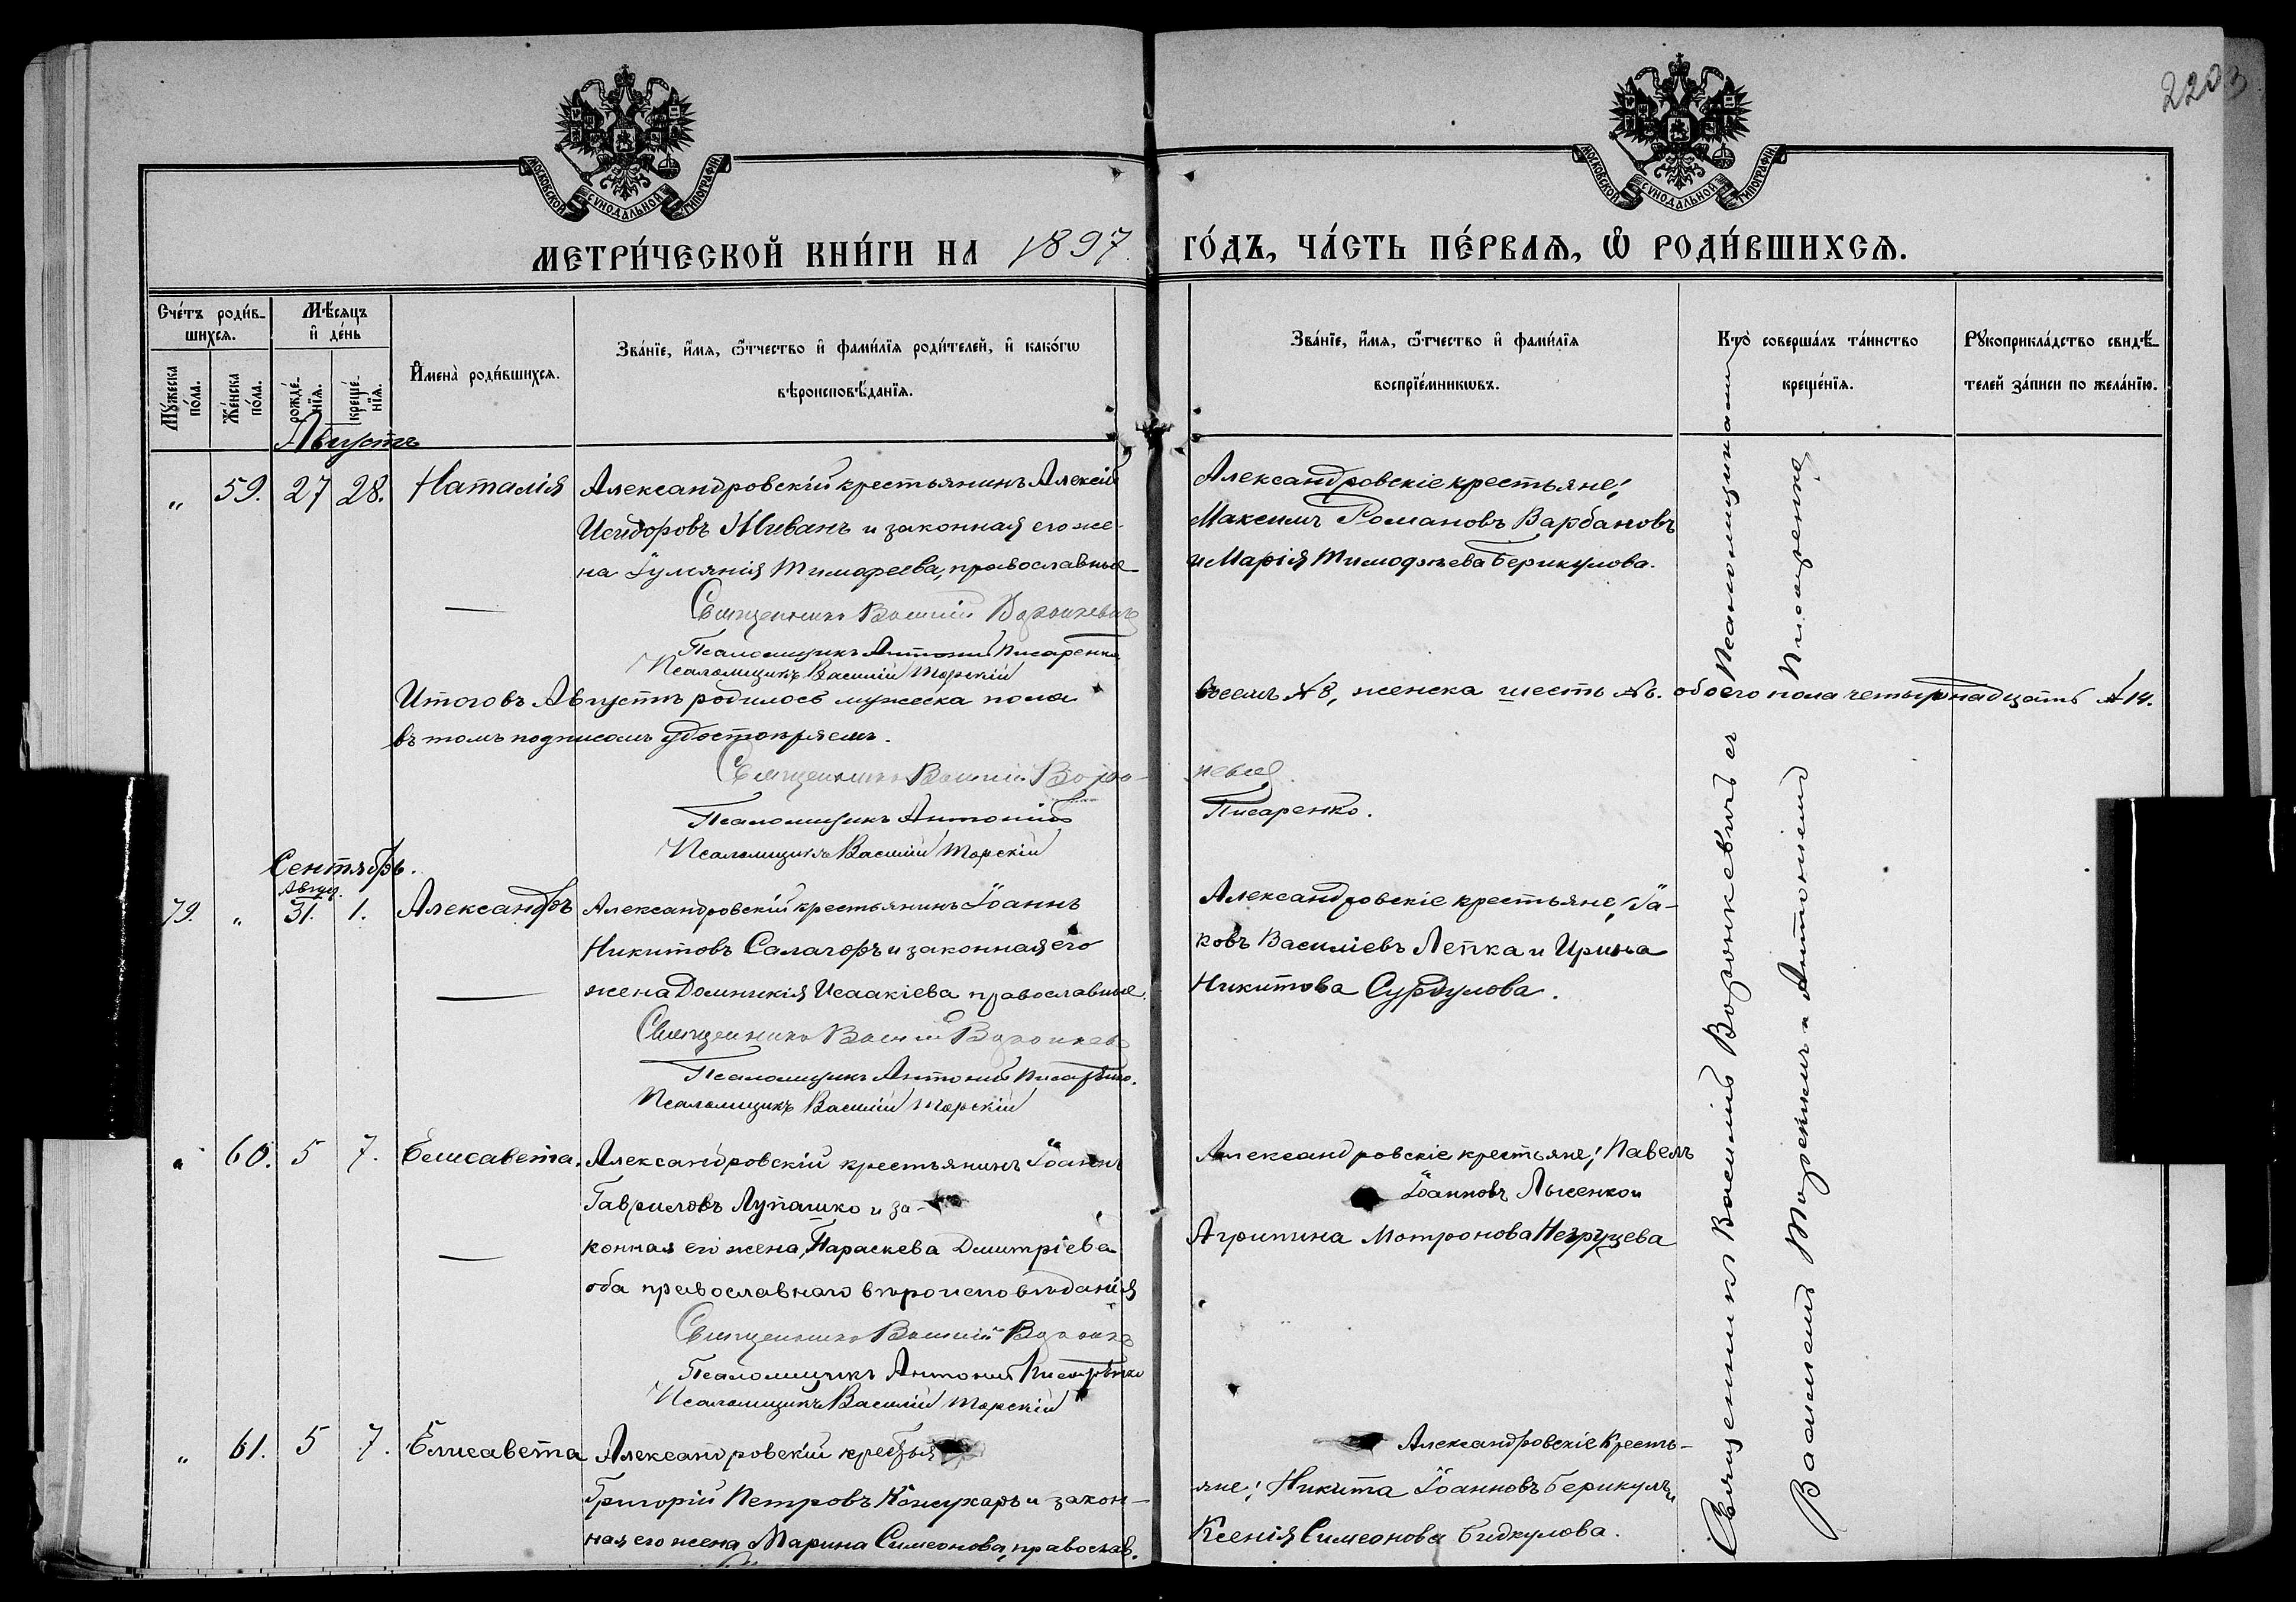 2203
МОСКОВСКОЙ СУНОДАЛЬНОЙ ТИПОГРАФІИ
МОСКОВСКОЙ СУНОДАЛЬНОЙ ТИПОГРАФІИ
МЕТРИ́ЧЕСКОЙ КНИ́ГИ НА 1897. ГО́ДЪ, ЧА́СТЬ ПЕ́РВАѦ, Ѡ҆ РОДИ́ВШИХСѦ.
Сче́тъ роди́в-
шихсѧ.
Мѣ́сѧцъ
и҆ де́нь
Мꙋ́жеска по́ла.
Же́нска по́ла.
рожде́-
нїѧ.
креще́-
нїѧ.
И҆мена̀ роди́вшихсѧ.
Зва́нїе, и҆́мѧ, ѻ҆́тчество и҆ фами́лїѧ роди́телей, и҆ како́гѡ
вѣроисповѣ́данїѧ.
Зва́нїе, и҆́мѧ, ѻ҆́тчество и҆ фами́лїѧ
воспрїе́мникѡвъ.
Кто̀ соверша́лъ та́инство
креще́нїѧ.
Рꙋкоприкла́дство свидѣ́-
телей за́писи по жела́нїю.
Августъ
„ 59. 27 28. Наталія Александровскій крестьянинъ Алексій
Исидоровъ Живанъ и законная его же-
на Іуліанія Тимофеева, православные
Священникъ Василій Воронкевичъ
Псаломщикъ Антоній Писаренко
Псаломщикъ Василій Торскій
Александровскіе крестьяне:
Максимъ Романовъ Варбановъ
и Марія Тимофѣева Берикулова.
Итого въ Августѣ родилось мужеска пола восемь № 8, женска шесть № 6. обоего пола четырнадцать № 14.
въ томъ подписомъ удостовѣряемъ.
Священникъ Василій Ворон-
кевичъ
Псаломщикъ Антоній Писаренко.
Псаломщикъ Василій Торскій
Сентябрь.
Авгус.
79. „ 31. 1. Александръ Александровскій крестьянинъ Іоаннъ
Никитовъ Салагоръ и законная его
жена Домникія Исаакіева православные.
Священникъ Василій Воронкевъ
Псаломщикъ Антоній Писаренко.
Псаломщикъ Василій Торскій
Александровскіе крестьяне: Іа-
ковъ Василіевъ Лепка и Ирина
Никитова Сурдулова.
„ 60. 5 7. Елисавета. Александровскій крестьянинъ Іоаннъ
Гавриловъ Лупашко и за-
конная его жена, Параскева Димитріева
оба православнаго вѣроисповѣданія
Священникъ Василій Воронк
Псаломщикъ Антоній Писаренко
Псаломщикъ Василій Торскій
Александровскіе крестьяне: Павелъ
Іоанновъ Лысенко и
Агрипина Мотронова Негруцева
„ 61. 5 7. Елисавета Александровскій крестья
Григорій Петровъ Кожухарь и закон-
ная его жена Марина Симеонова, православ.
Александровскіе Кресть-
яне: Никита Іоанновъ Берикулъ и
Ксенія Симеонова Бидкулова.
Священникъ Василій Воронкевичъ съ Псаломщиками
Василіемъ Торскимъ и Антоніемъ Писаренко